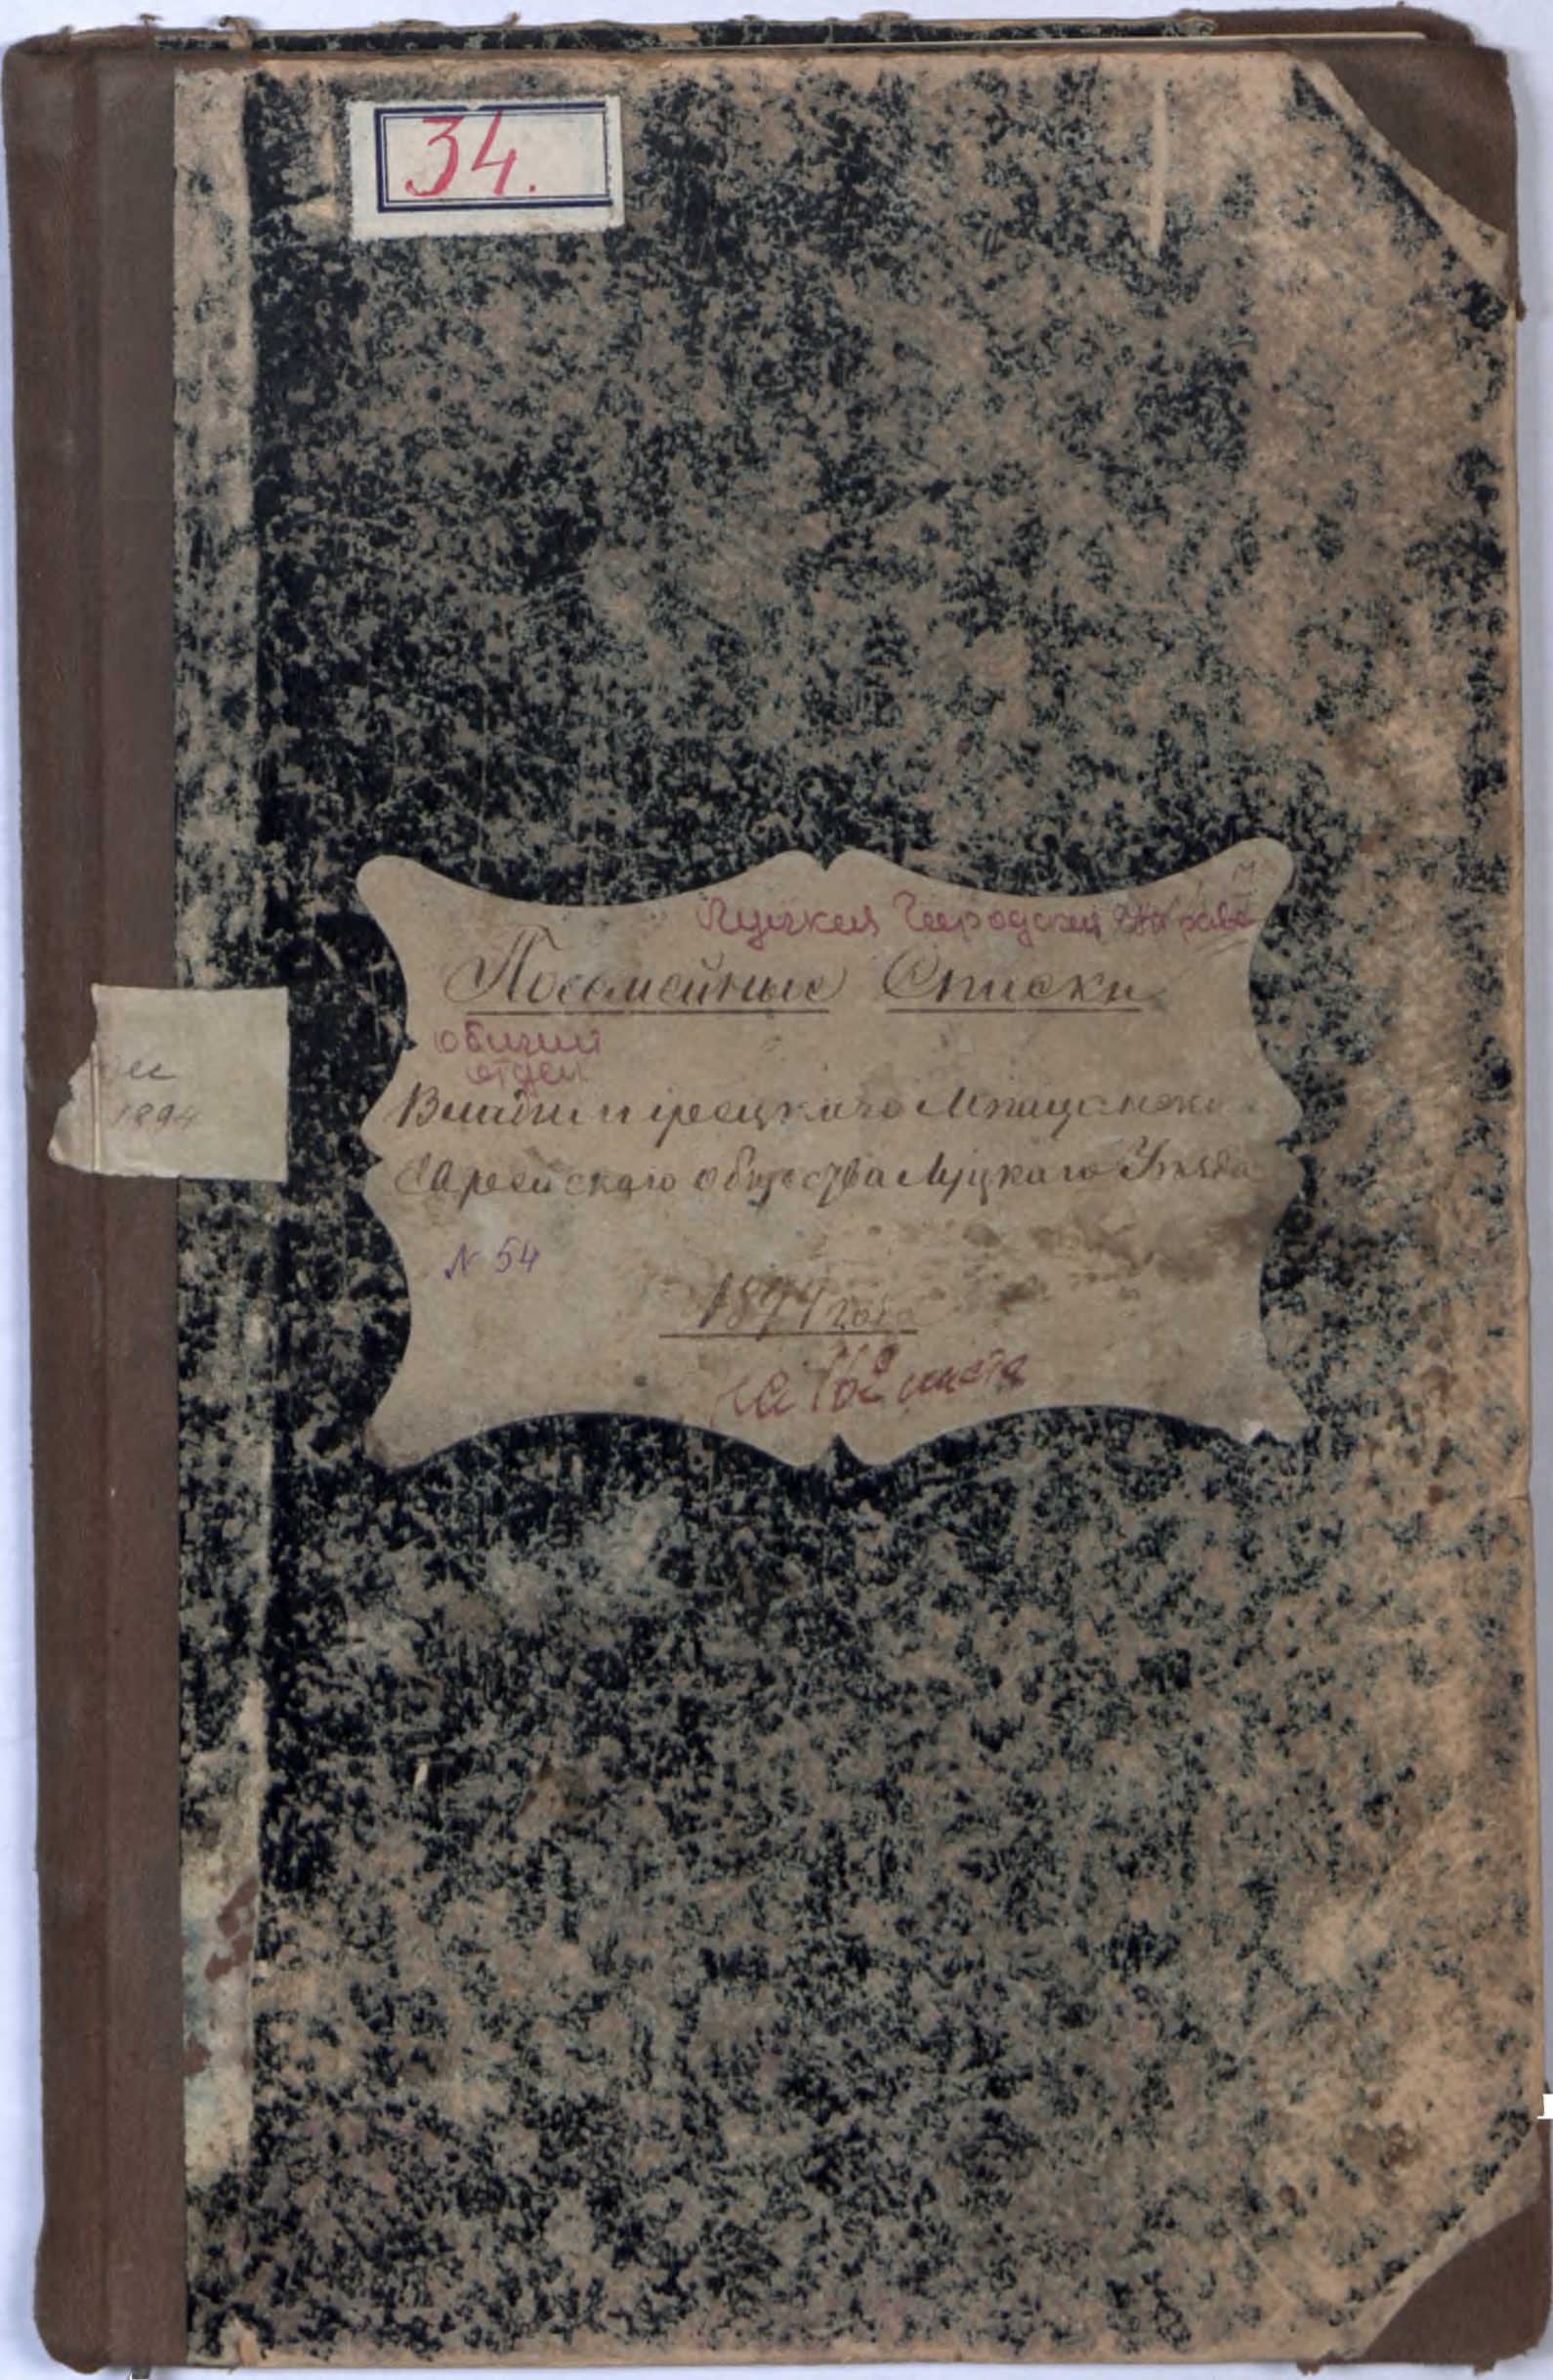 34.
Луцкая Городская Управа
Посемейные Списки
общий
отдел
Владимирецкаго Мѣщанска
Еврейскаго общества Луцкаго Уѣзда
№ 54
1894 года
на листа
1894